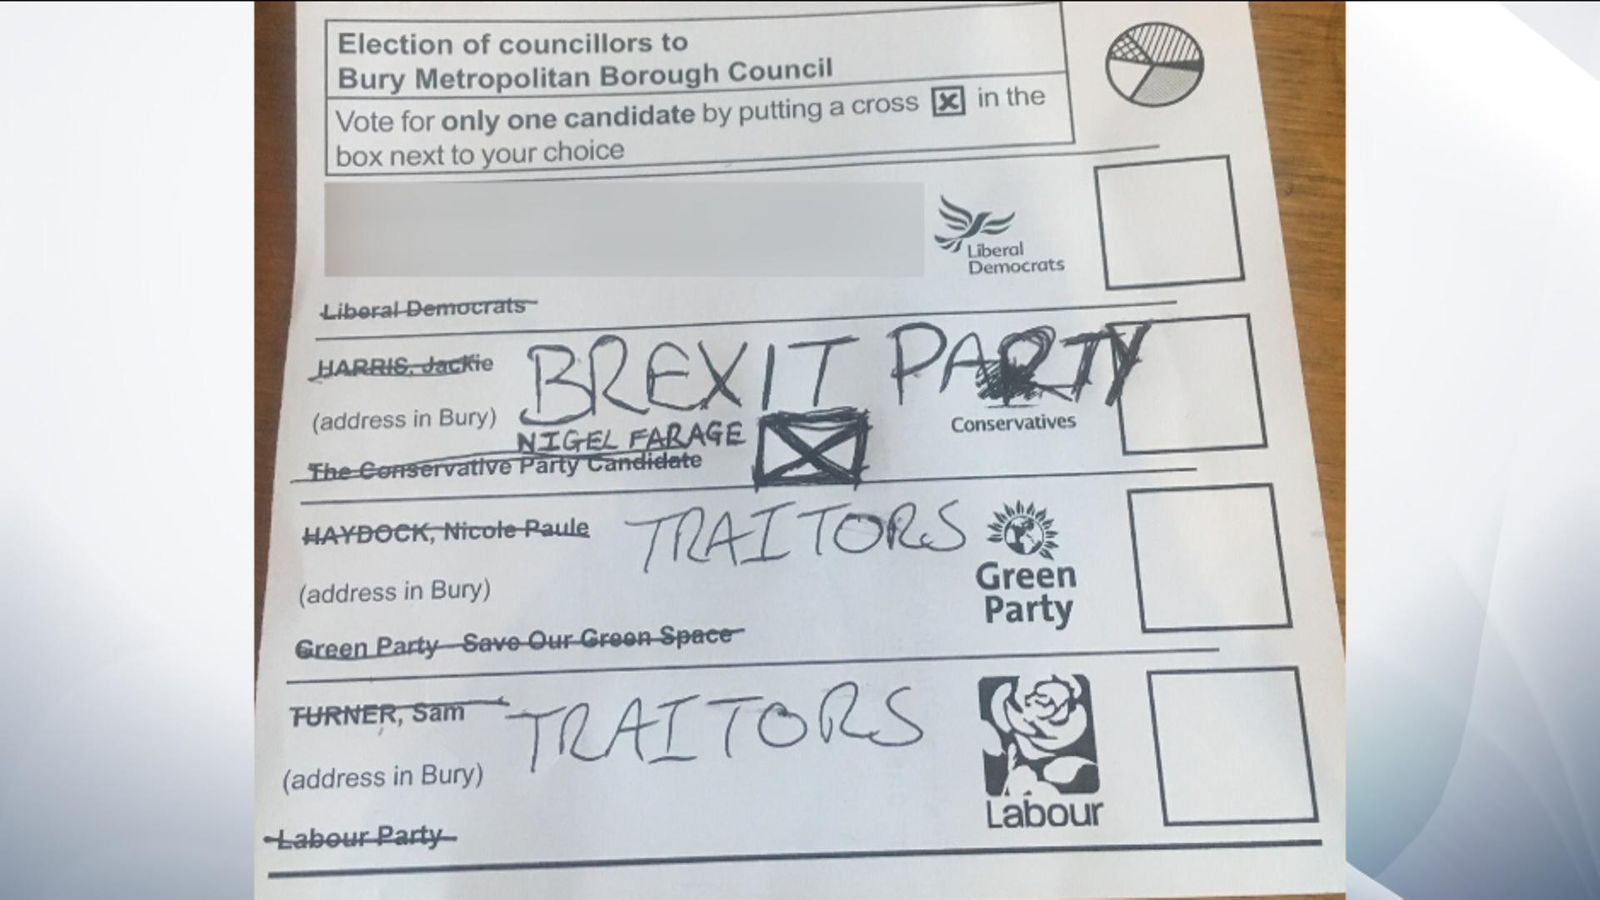 Election of councillors to
Bury Metropolitan Borough Council
Vote for only one candidate by putting a cross X in the
box next to your choice
Liberal
Democrats
Liberal Democrats
HARRIS, Jackie
BREXIT PARTY
(address in Bury)
Conservatives
NIGEL FARAGE
The Conservative Party Candidate
HAYDOCK, Nicole Paule
TRAITORS
(address in Bury)
Green
Party
Green Party - Save Our Green Space
TURNER, Sam
TRAITORS
(address in Bury)
Labour
Labour Party